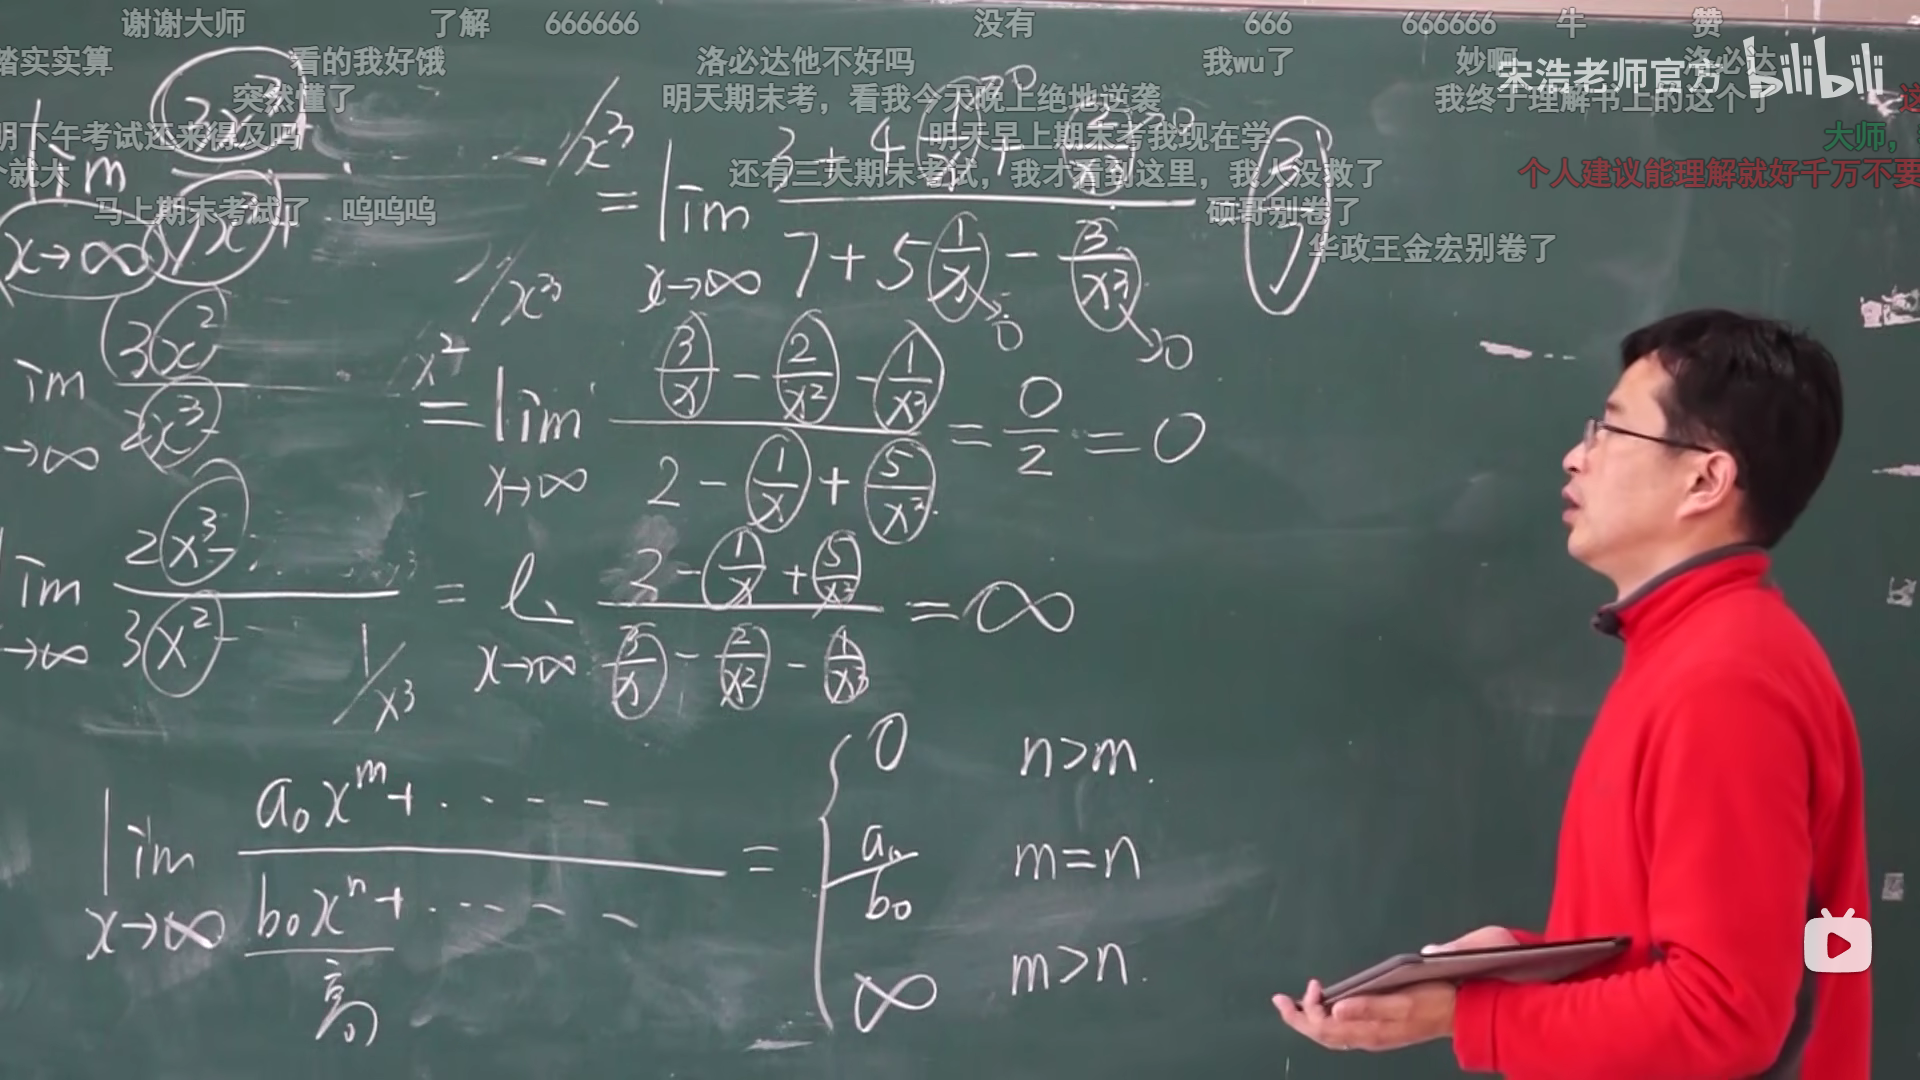 谢谢大师 了解 666666 没有 666 666666 牛 赞
踏实实算 看的我好饿 洛必达他不好吗 我wu了 妙啊 洛必达
宋浩老师官方 bilibili
突然懂了 明天期末考，看我今天晚上绝地逆袭 我终于理解书上的这个了 这
明下午考试还来得及吗 明天早上期末考我现在学 大师，
个就大 还有三天期末考试，我才看到这里，我人没救了 个人建议能理解就好千万不要
马上期末考试了 呜呜呜 硕哥别卷了
华政王金宏别卷了
lim x→∞ 3x³ / 7x³+ /x³ = lim x→∞ (3 + 4 1/x + 2/x³) / (7 + 5 1/x − 3/x³) = 3/7
→0 →0 →0 →0
/x³
lim →∞ 3x² / 2x³ x² = lim x→∞ (3/x − 2/x² − 1/x³) / (2 − 1/x + 5/x³) = 0/2 = 0
lim →∞ 2x³− / 3x²− = l x→∞ (2 − 1/x + 5/x³) / (3/x − 2/x² − 1/x³) = ∞
1/x³
lim x→∞ a₀xᵐ+···· / b₀xⁿ+···· = { 0 n>m.
a₀/b₀ m=n
∞ m>n.
高